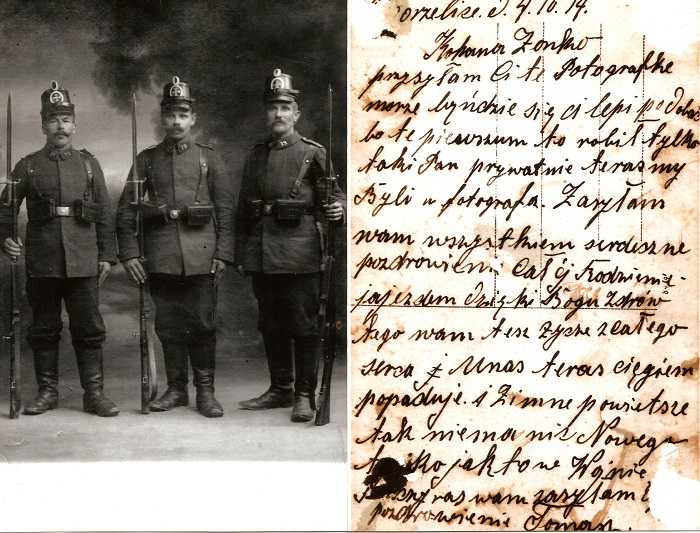 d. 4.10.14.
Kohana Zonko
przysyłam Ci te Fotografke
morze byńdzie się ci lepi podobać
bo te pierwszum to robił tylko
taki Pan prywatnie teras my
Byli u fotografa. Zasyłam
wam wszystkiem serdeszne
pozdrowieni Całý Rodzienie
ja jezdem dzięki Bogu Zdrów
tego wam tesz życze z całego
serca i Unas teras ciągiem
popaduje. i Zimne powietsze
tak niema nis Nowego
jak to we Wojnie
ras wam zasyłam
pozdrowienie Tomasz.